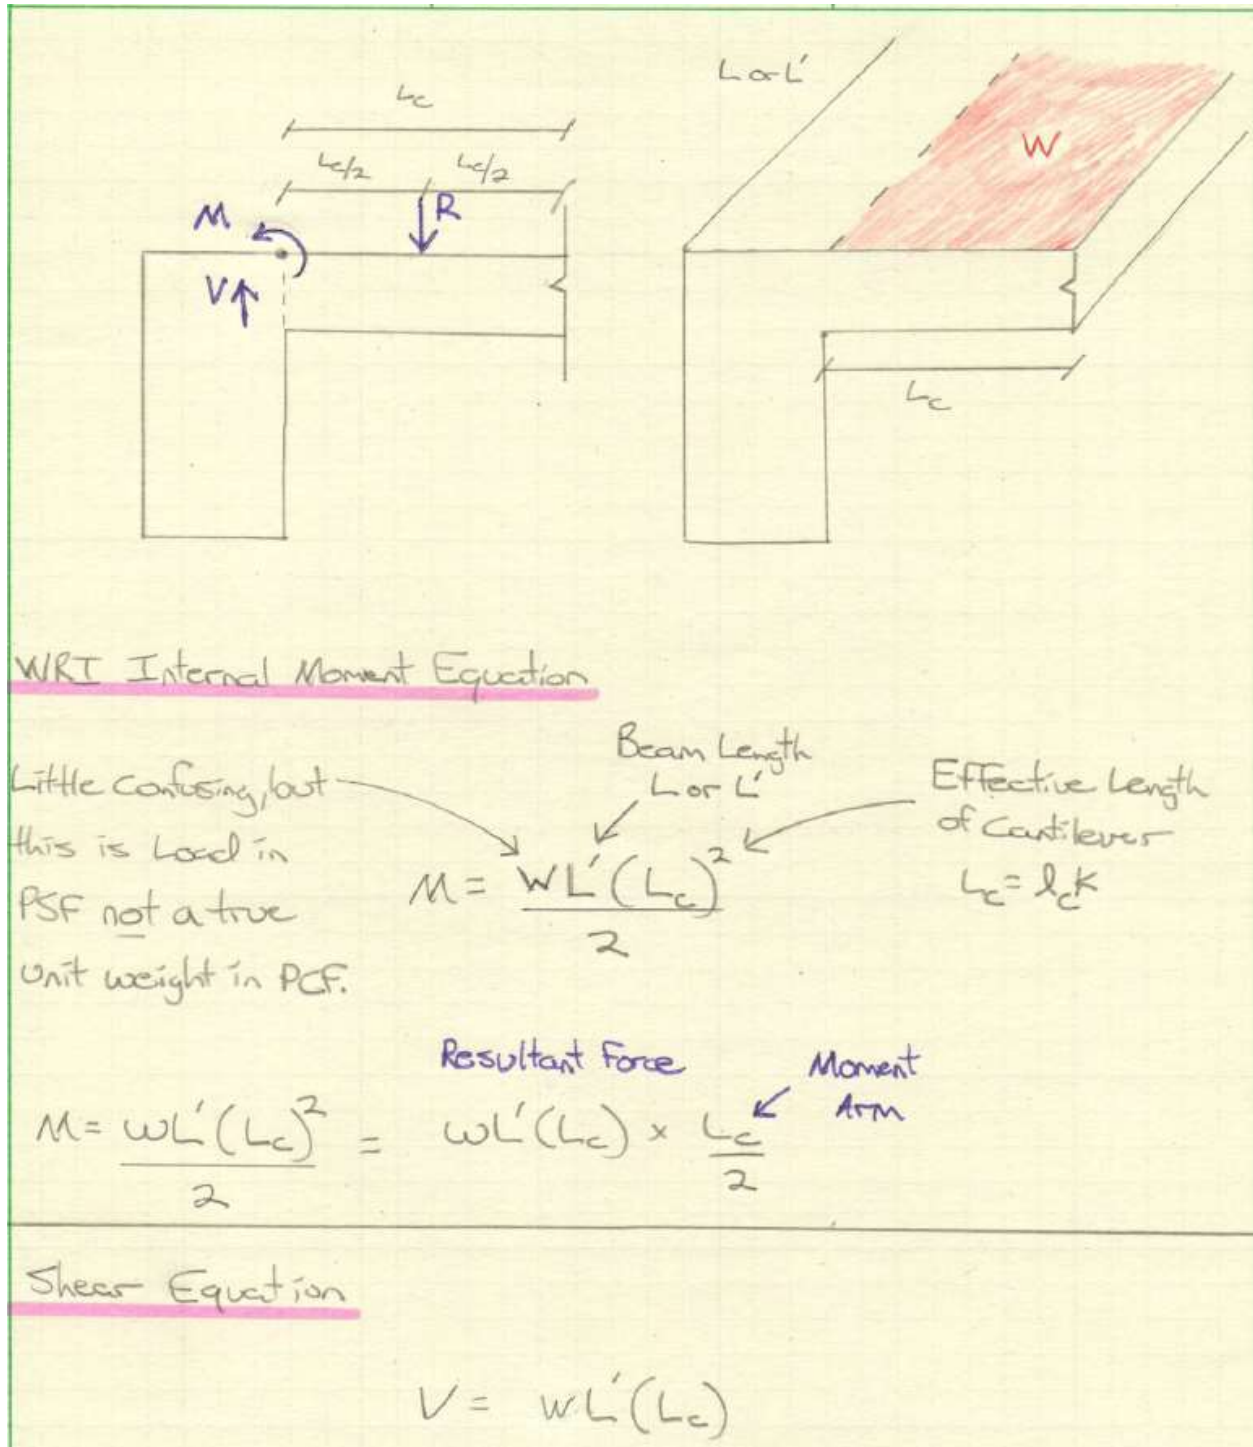 L or L'
Lc
Lc/2 Lc/2
W
M
R
V
Lc
WRI Internal Moment Equation
Beam Length
L or L'
Little confusing, but
this is Load in
PSF not a true
Unit weight in PCF.
Effective Length
of Cantilever
Lc = lcK
M = WL'(Lc)²
2
Resultant Force
Moment
Arm
M = WL'(Lc)² = WL'(Lc) × Lc
2 2
Shear Equation
V = WL'(Lc)